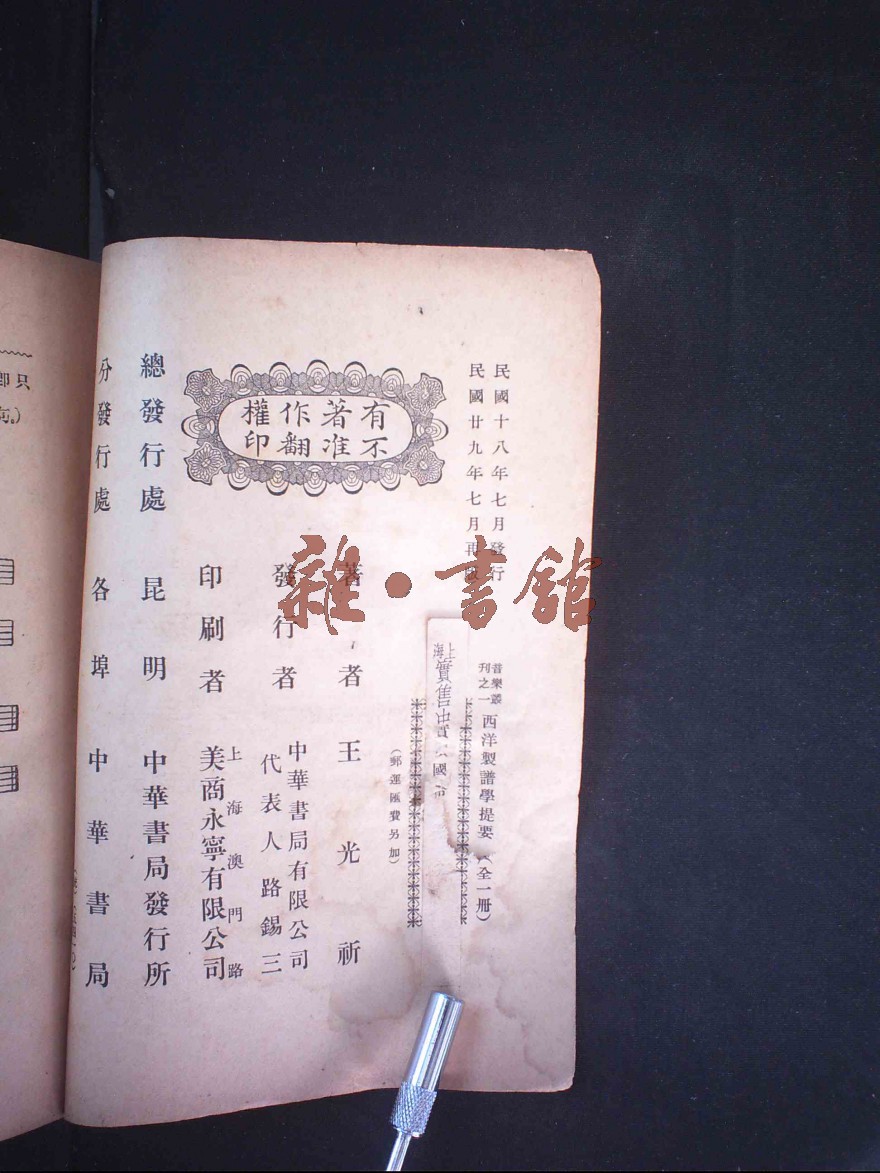 民國十八年七月發行
民國廿九年七月再版
音樂叢刊之一 西洋製譜學提要（全一冊）
上海實售中
國
（郵運匯費另加）
有著作權
不准翻印
著者 王光祈
發行者 中華書局有限公司
代表人路錫三
印刷者 上海澳門路
美商永寧有限公司
總發行處 昆明 中華書局發行所
分發行處 各埠中華書局
只即
雜·書館